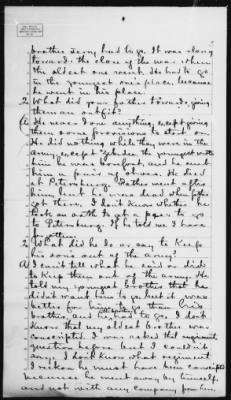 brother Jerry had to go. It was along
toward the close of the war when
the oldest one went. He had to go
in the youngest one's place because
he went in his place.
Q What did your father toward giving
them an outfit?
A He never done anything, except giving
them some provisions to start on.
He did nothing while they were in the
army, except when the youngest wrote
him he was barefoot, and he sent
him a pair of shoes. He died
at Petersburg. Father went after
him but he was dead when father
got there. I don't know whether he
took an oath to get a pass to go
to Petersburg. If he told me I have
forgotten.
Q What did he do or say to keep
his sons out of the army?
A I can't tell what he said or did
to keep them out of the army. He
told my youngest brother that he
didn't want him to go but it was
better for him to go than his
brother, and he had to go. I don't
know that my oldest brother was
conscripted. I was asked that
question before but I couldn't
say. I don't know what regiment.
I reckon he must have been conscripted
because he went away by himself,
and not with any company from here.